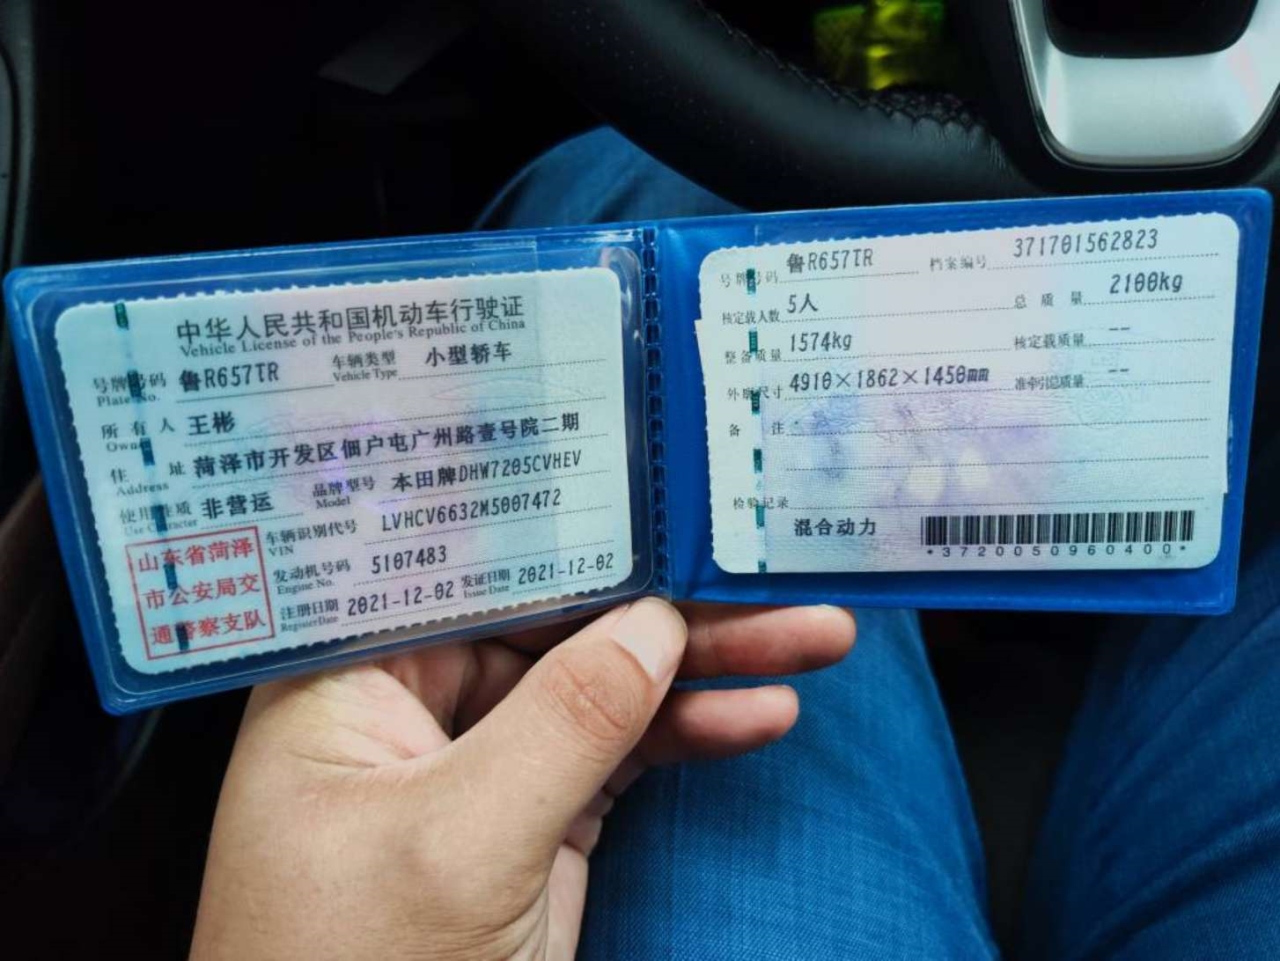 中华人民共和国机动车行驶证
Vehicle License of the People's Republic of China
号牌号码 鲁R657TR 车辆类型 小型轿车
Plate No. Vehicle Type
所有人 王彬
Owner
住址 菏泽市开发区佃户屯广州路壹号院二期
Address
使用性质 非营运 品牌型号 本田牌DHW7205CVHEV
Use Character Model
车辆识别代号 LVHCV6632M5007472
VIN
发动机号码 5107483
Engine No.
注册日期 2021-12-02 发证日期 2021-12-02
Register Date Issue Date
山东省菏泽
市公安局交
通警察支队
号牌号码 鲁R657TR 档案编号 371701562823
核定载人数 5人 总质量 2100kg
整备质量 1574kg 核定载质量 --
外廓尺寸 4910×1862×1450mm 准牵引总质量 --
备注
检验记录
混合动力
*3720050960400*